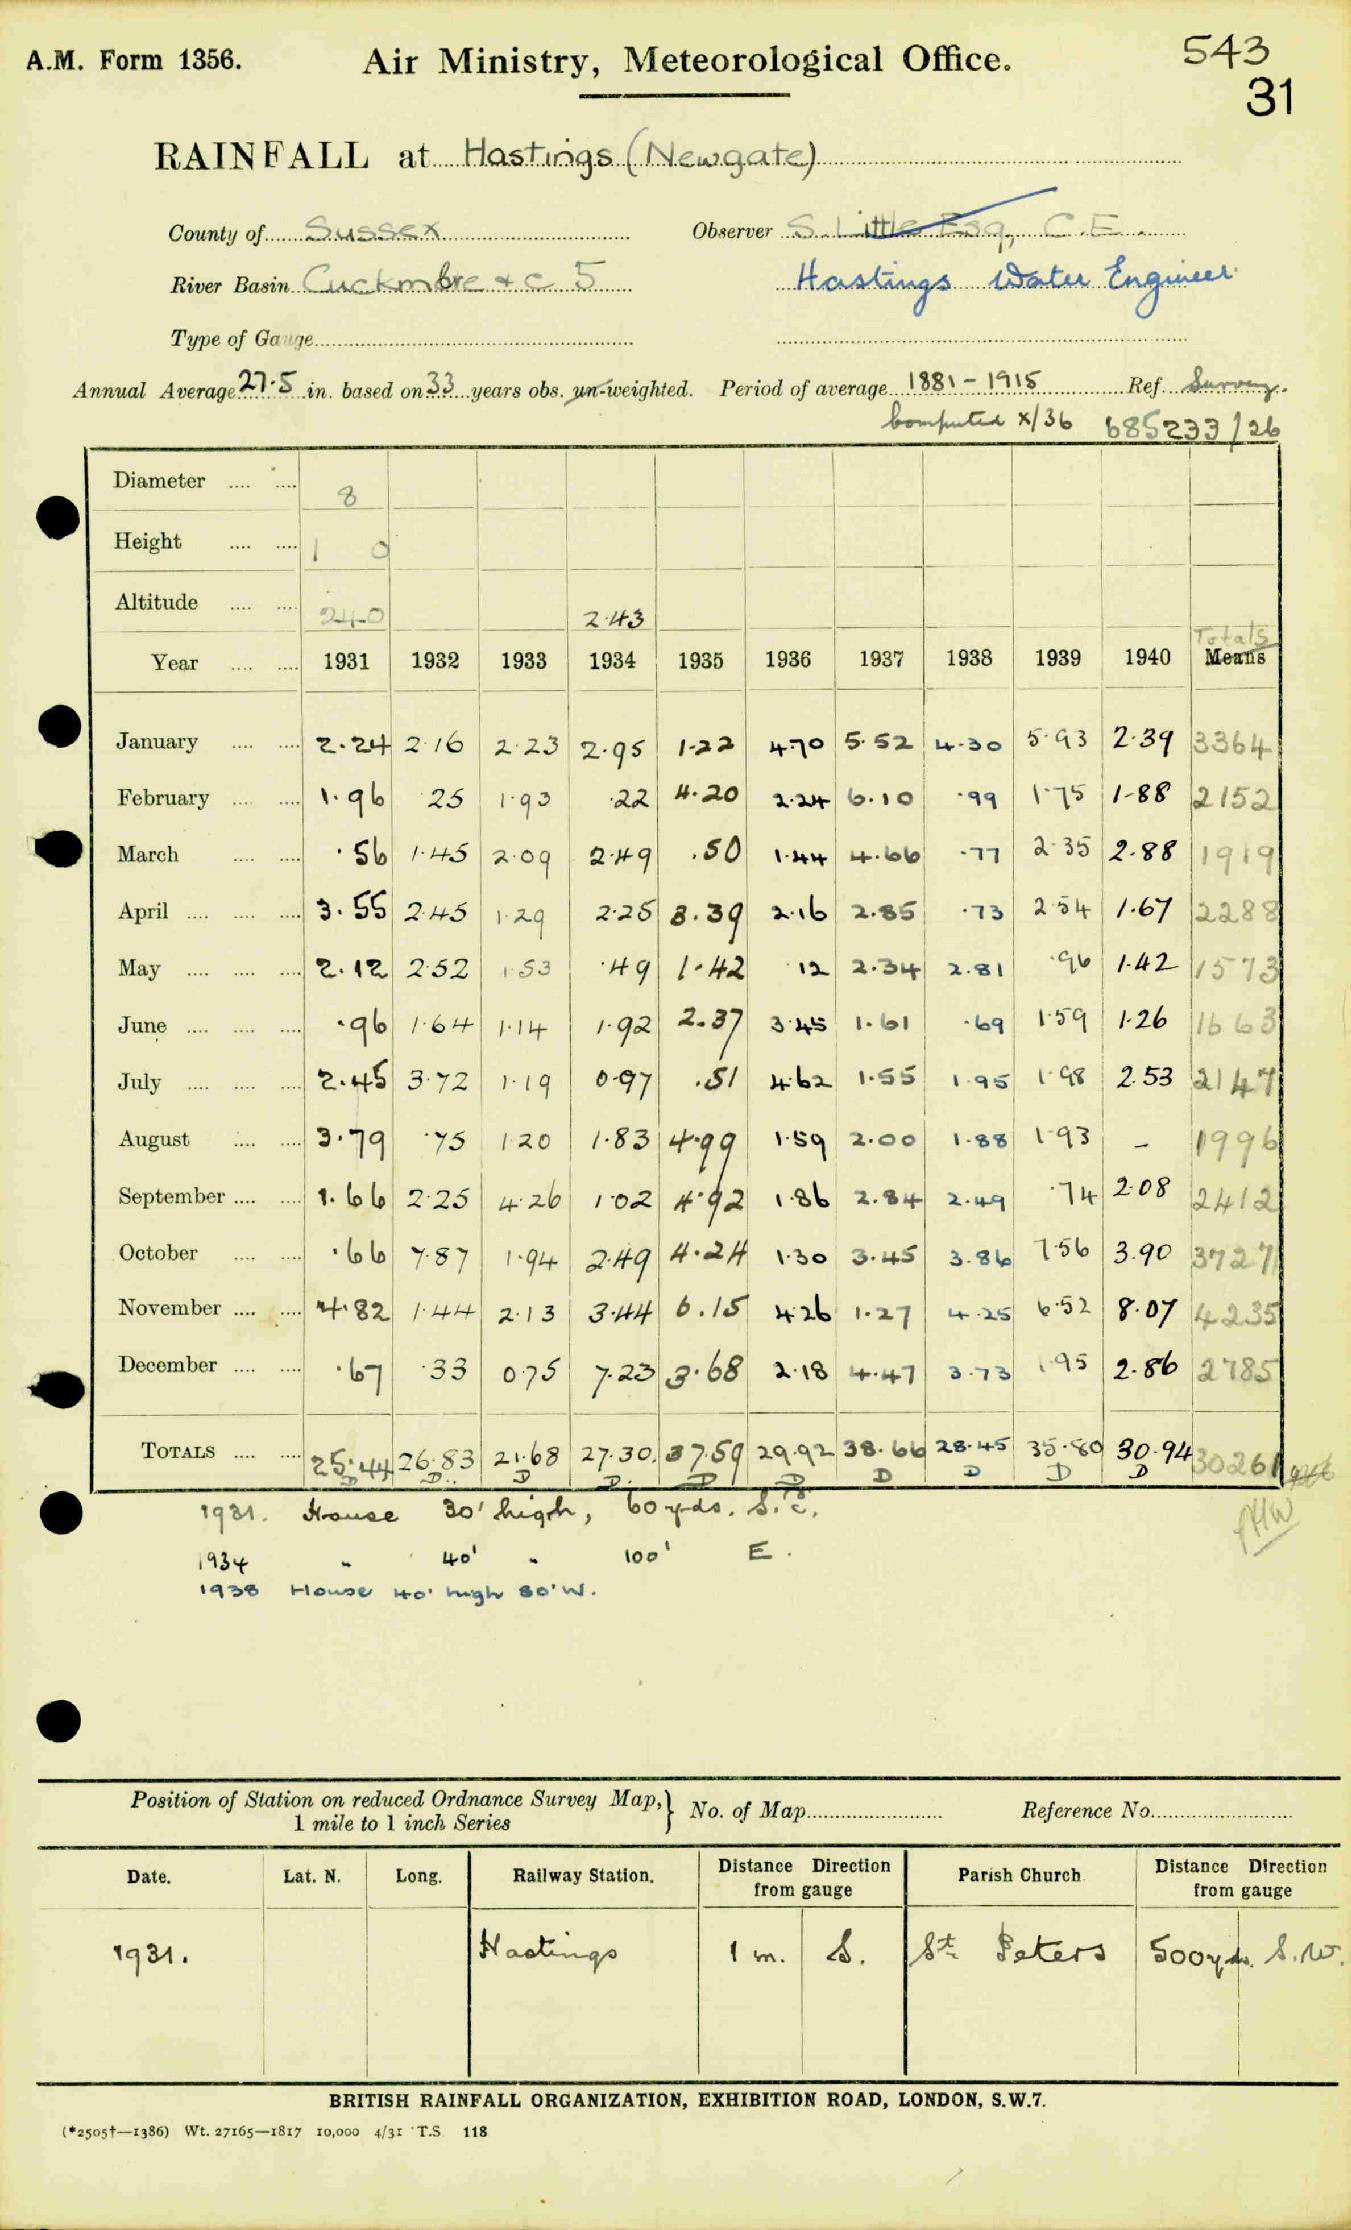 A.M. Form 1356. Air Ministry, Meteorological Office. 543
31
RAINFALL at Hastings (Newgate)
County of Sussex Observer S. Little Esq, C.E.
River Basin Cuckmbre & c 5 Hastings Water Engineer
Type of Gauge
Annual Average 27.5 in. based on 33 years obs. un-weighted. Period of average 1881 - 1915 Ref. Survey.
Computed X/36 685233/26
Diameter 8
Height 1 0
Altitude 240 243
Totals
Year 1931 1932 1933 1934 1935 1936 1937 1938 1939 1940 Means
January 2.24 2.16 2.23 2.95 1.22 4.70 5.52 4.30 5.93 2.39 3364
February 1.96 25 1.93 .22 4.20 2.24 6.10 .99 1.75 1.88 2152
March .56 1.45 2.09 2.49 .50 1.44 4.66 .77 2.35 2.88 1919
April 3.55 2.45 1.29 2.25 3.39 2.16 2.85 .73 2.54 1.67 2288
May 2.12 2.52 1.53 .49 1.42 12 2.34 2.81 .96 1.42 1573
June .96 1.64 1.14 1.92 2.37 3.45 1.61 .69 1.59 1.26 1663
July 2.45 3.72 1.19 0.97 .51 4.62 1.55 1.95 1.98 2.53 2147
August 3.79 .75 1.20 1.83 4.99 1.59 2.00 1.88 1.93 - 1996
September 1.66 2.25 4.26 1.02 4.92 1.86 2.84 2.49 .74 2.08 2412
October .66 7.87 1.94 2.49 4.24 1.30 3.45 3.86 7.56 3.90 3727
November 4.82 1.44 2.13 3.44 6.15 4.26 1.27 4.25 6.52 8.07 4235
December .67 .33 0.75 7.23 3.68 2.18 4.47 3.73 1.95 2.86 2785
TOTALS 25.44 26.83 21.68 27.30 37.59 29.92 38.66 28.45 35.80 30.94 30261
D D D D D D D D D D
1931. House 30' high, 60 yds. S.E.
1934 " 40' " 100' E.
1938 House 40' high 80' W.
Position of Station on reduced Ordnance Survey Map, } No. of Map Reference No.
1 mile to 1 inch Series
Date. Lat. N. Long. Railway Station. Distance Direction from gauge Parish Church Distance Direction from gauge
1931. Hastings 1 m. S. St Peters 500 yds. S.W.
BRITISH RAINFALL ORGANIZATION, EXHIBITION ROAD, LONDON, S.W.7.
(*2505†—1386) Wt. 27165—1817 10,000 4/31 T.S. 118